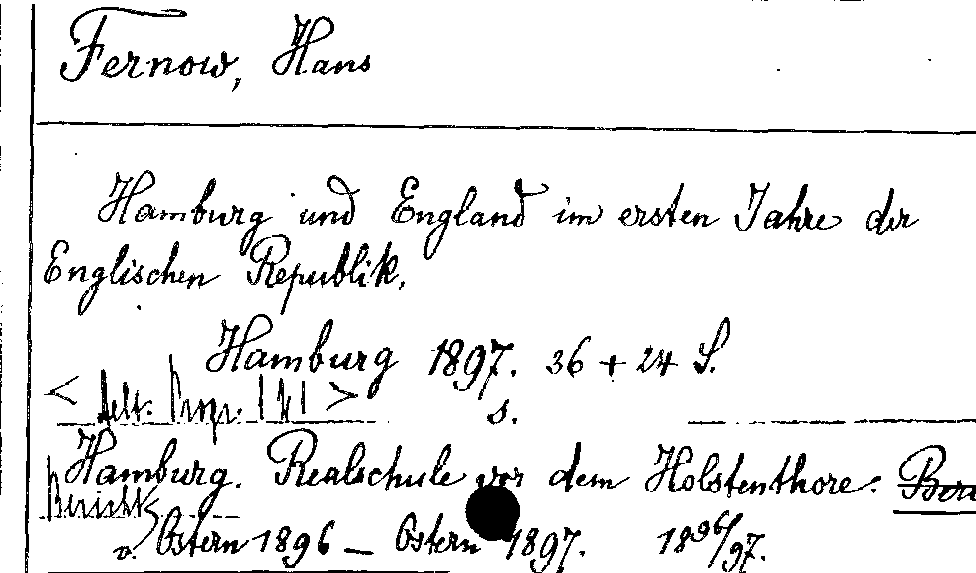 Fernow, Hans
Hamburg und England im ersten Jahre der
Englischen Republik.
Hamburg 1897. 36 + 24 S.
s.
Hamburg. Realschule vor dem Holstenthore:
Bericht
v. Ostern 1896 – Ostern 1897. 1896/97.